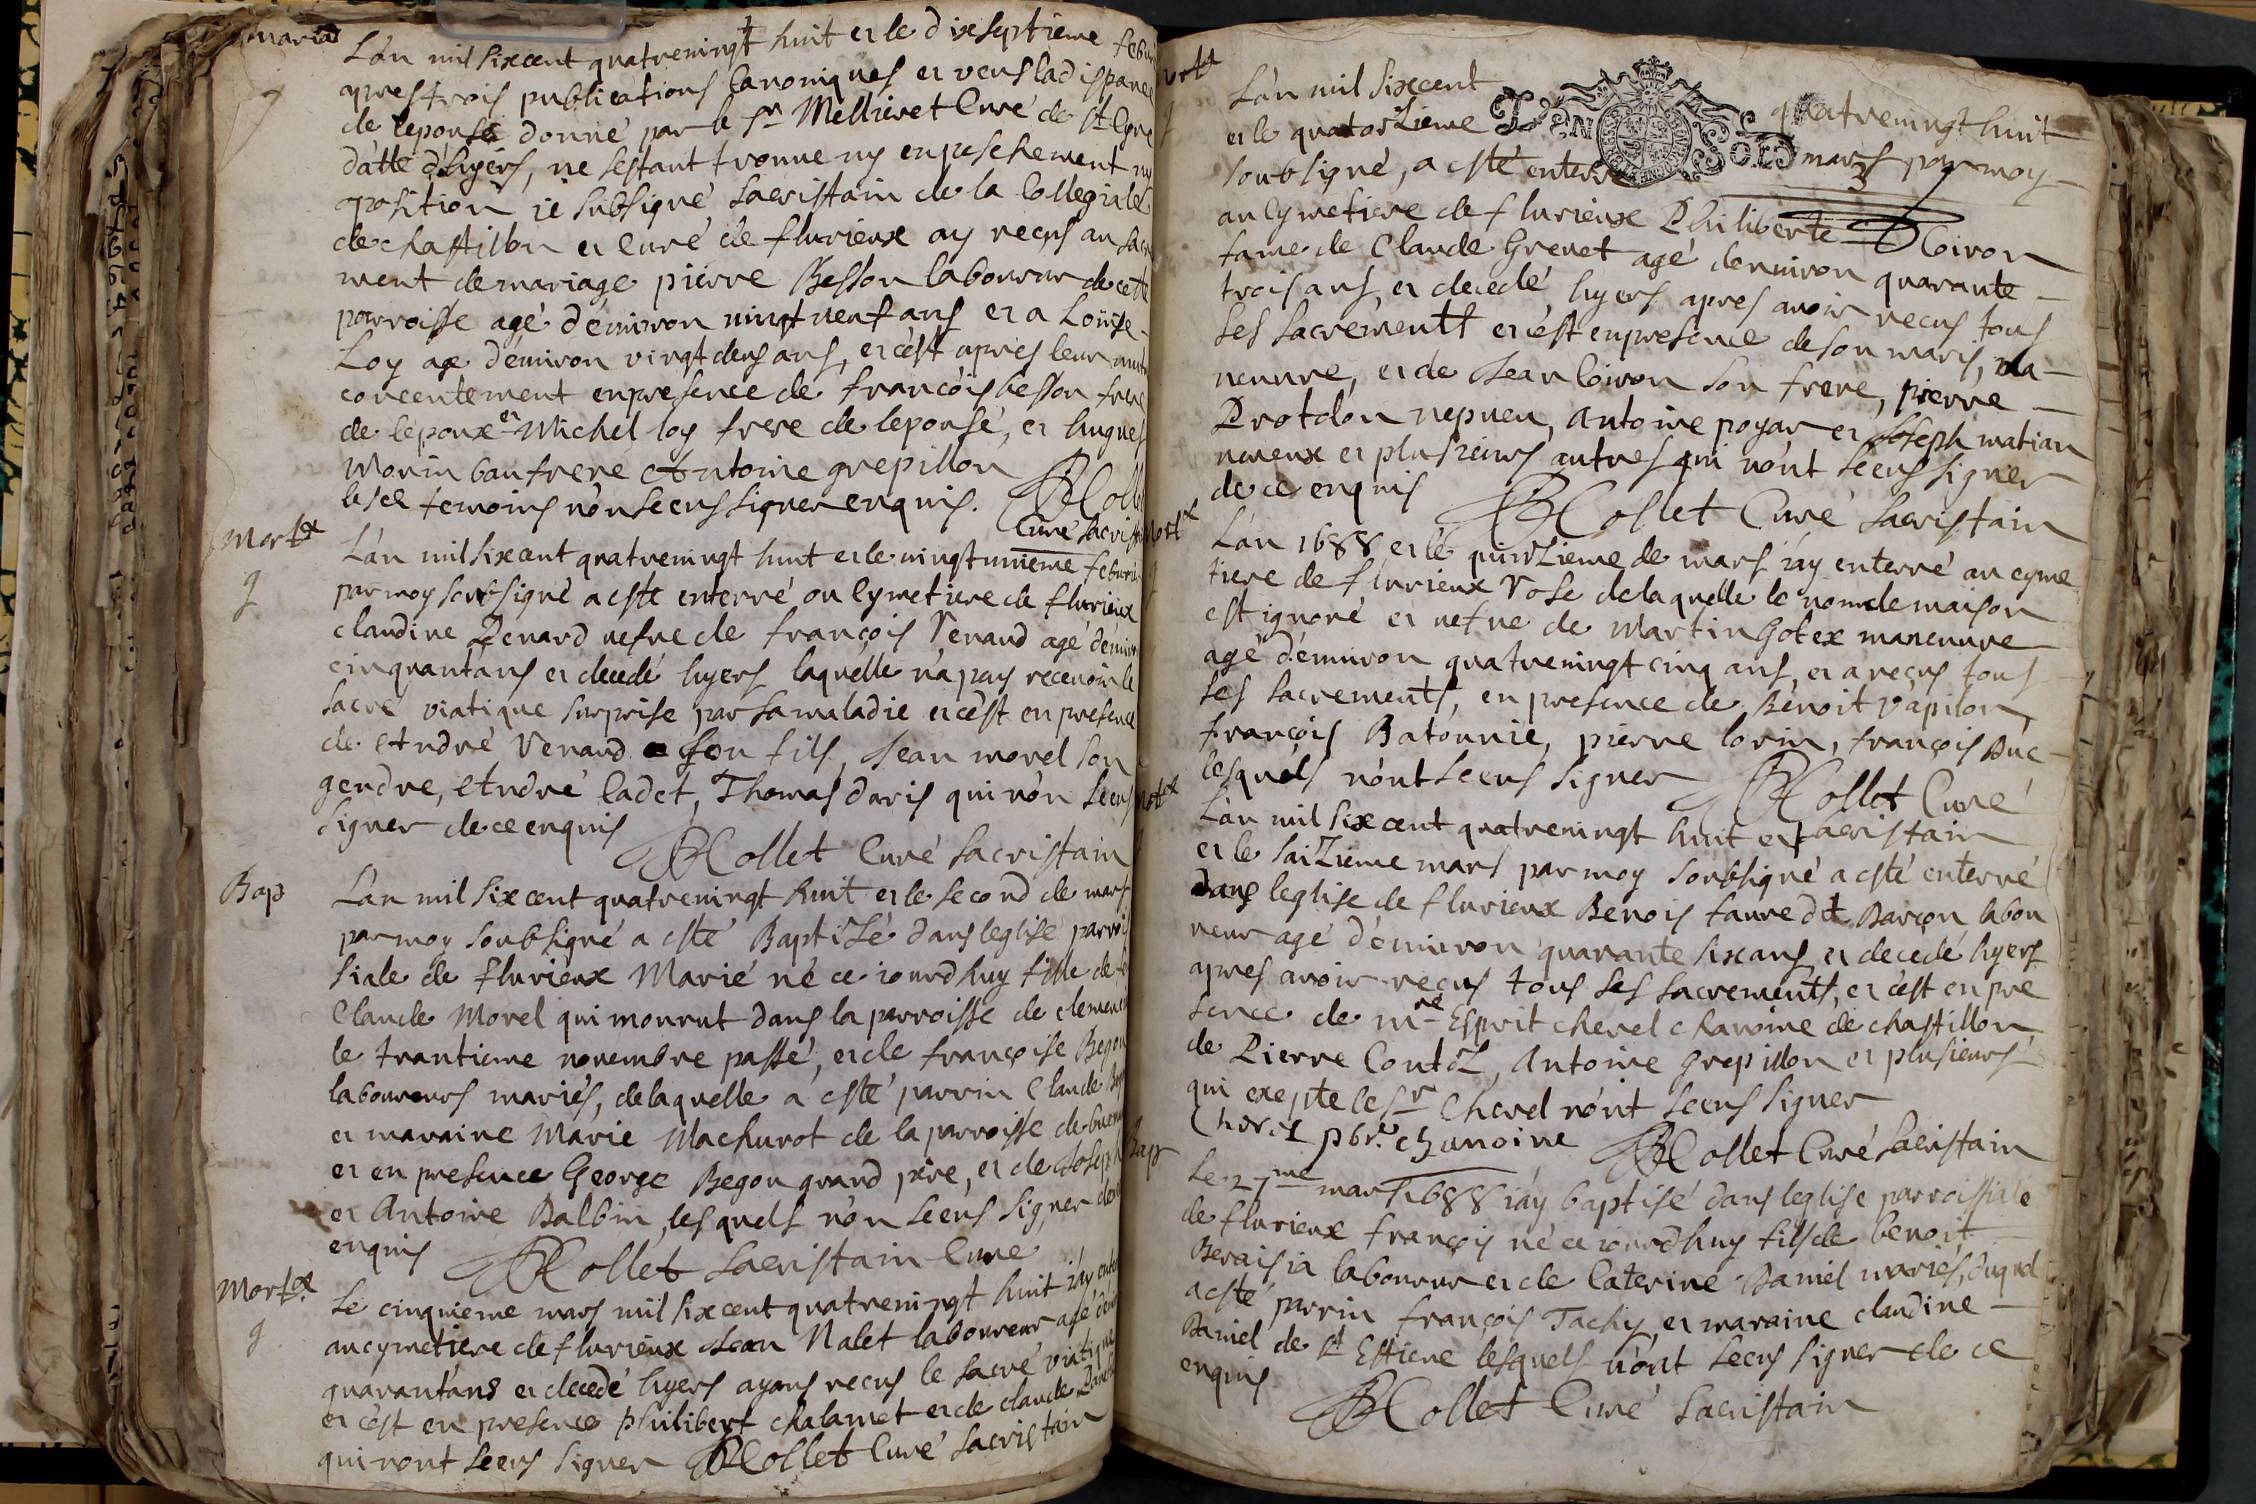 Maria
L'an mil sixcent quatreningt huit et le dixseptieme febur
apres trois publications Canoniques et veus la dispance
de leponsé donné par le Sr Mellieret Curé de St Cyre
datté d'hyers, ne sestant trouue ny enpeschement ny
oposition ie subsigné Sacristain de la Collegiale
de chastillon et Curé de flurieux ay recus au Sacre
ment de mariage pierre Besson laboureur de cette
parroisse agé d'enuiron uingt neuf ans et a Louise
Loy age d'enuiron vingt deus ans, et c'est apres leur mutu
concentement enpresence de françois besson frere
de lépoux et Michel loy frere de leponsé, et hugues
Morin baufrere Antoine grepillon
les se temoins n'on sceus signer enquis. BCollet
Curé Sacrist
Mort
L'an mil sixcent quatreningt huit et le uingt unieme feburie
par moy soubsigné a esté enterré ou Cymetiere de flurieux
claudine Penard uefue de françois Venaud agé d'enuiron
cinquantans et decedé hyers laquelle n'a pas receuoir le
sacré viatique surprise par sa maladie et c'est en presence
de André Venaud son fils, Jean morel son
gendre, André Cadet, Thomas daris qui n'on sceus
signer de ce enquis
BCollet Curé Sacristain
Bap
L'an mil sixcent quatreningt huit et le second de mars
par moy soubsigné a esté Baptizé dans leglise parrois
siale de flurieux Marie né ce iourdhuy fille de feu
Claude Morel qui mourut dans la parroisse de clemenci
le trantieme nouembre passé, et de françoise Begon
laboureurs mariés, de laquelle a esté parrin Claude Begon
et maraine Marie Machurot de la parroisse de buene
et en presence George Begon grand pere, et de Joseph
et Antoine Balbin, lesquels n'on sceus signer de ce
enquis
BCollet Sacristain Cure
Mort
Le cinquieme mars mil sixcent quatreningt huit i'ay enter
au cymetiere de flurieux Jean Nalet laboureur agé denui
quarantans et decedé hyers ayans recus le sacré viatique
et c'est en presence philibert chalamet et de claude
qui nont sceus signer BCollet Curé Sacristain
Mort
L'an mil sixcent quatreningt huit
et le quatorzieme mars par moy
soubsigné, a esté enterré
au Cymetiere de flurieux Philiberte Coiron
fame de Claude Grenet agé denuiron quarante
trois ans, et decedé hyers apres auoir recus tous
ses sacrements et c'est enpresence de son maris, ma
neuure, et de Jean Coiron son frere, pierre
Protdon nepueu, Antoine poyar et Joseph matian
neueux et plusieurs autres qui n'ont sceus signer
de ce enquis
BCollet Curé Sacristain
Mort
L'an 1688 et le quinzieme de mars i'ay enterré au cyme
tiere de flurieux Rose de laquelle le nom de maison
est ignoré et uefue de Martin Gotex maneuure
agé d'enuiron quatreningt cinq ans, et a recus tous
ses sacrements, en presence de Benoit Vapilon,
françois Batounie, pierre lorin, françois Duc
lesquels n'ont sceus signer
BCollet Curé
Sacristain
Mort
L'an mil sixcent quatreningt huit et
et le saizieme mars par moy soubsigné a esté enterré
dans leglise de flurieux Benois faure dt Barçon labou
reur agé d'enuiron quarante six ans et decedé hyers
apres auoir recus tous ses sacrements, et c'est en pre
sence de mre Esprit cherel chanoine de chastillon
de Pierre Contoz, Antoine grepillon et plusieurs
qui exepte le Sr Cherel n'ont sceus signer
Cherel pbre chanoine BCollet Curé Sacristain
Bap
Le 27me mars 1688 i'ay baptisé dans leglise parroissiale
de flurieux françois né ce iourdhuy fils de benoit
Beraisia laboureur et de Caterine Daniel mariés, duquel
a esté parrin françois Tachy, et maraine claudine
Daniel de St Estiene lesquels n'ont sceus signer de ce
enquis
BCollet Curé Sacristain